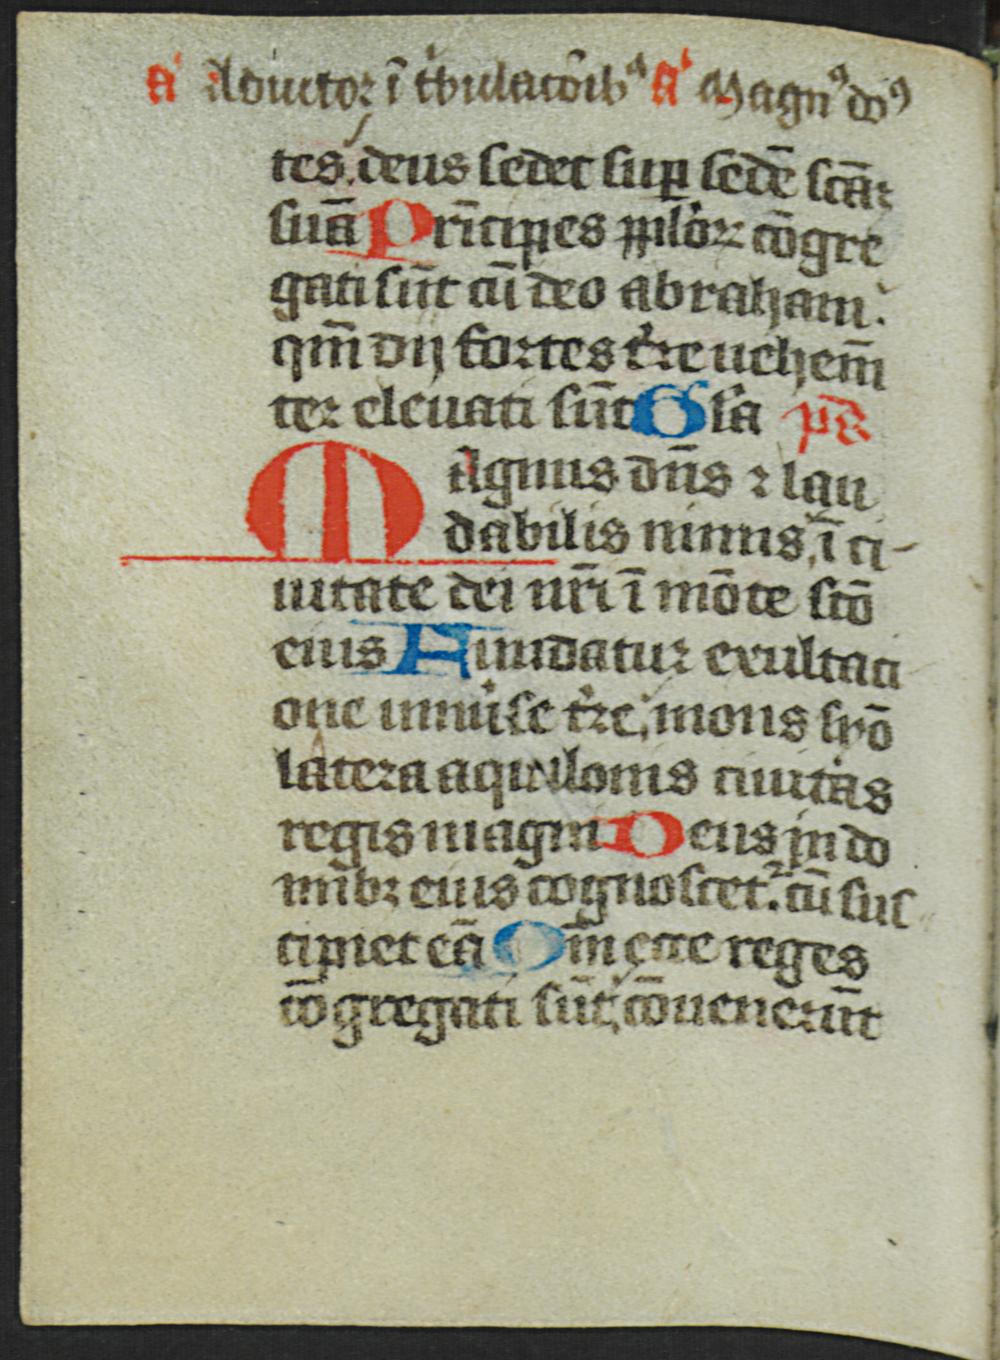 a Adiutor ī tͥbulacōib᷒ a Magn᷒ do᷒
tes, deus sedet suꝑ sedē scāꝫ
suā Prīcipes ꝓplōꝝ cōgre
gati sūt cū deo abraham.
qm̄ dij fortes tͬre uehem̄
ter eleuati sūt Gła ps̄
Magnus dn̄s ⁊ lau
dabilis nimis, ī ci-
uitate dei nr̄i ī mōte scō
eius Fundatur exultaci
one uniu͛se tͬre, mons syō
latera aquilonis ciuitas
regis magni Deus in do
mibꝫ eius cognoscet᷑. cū sus
cipiet eā Qm̄ ecce reges
cōgregati sūt, cōuenerūt